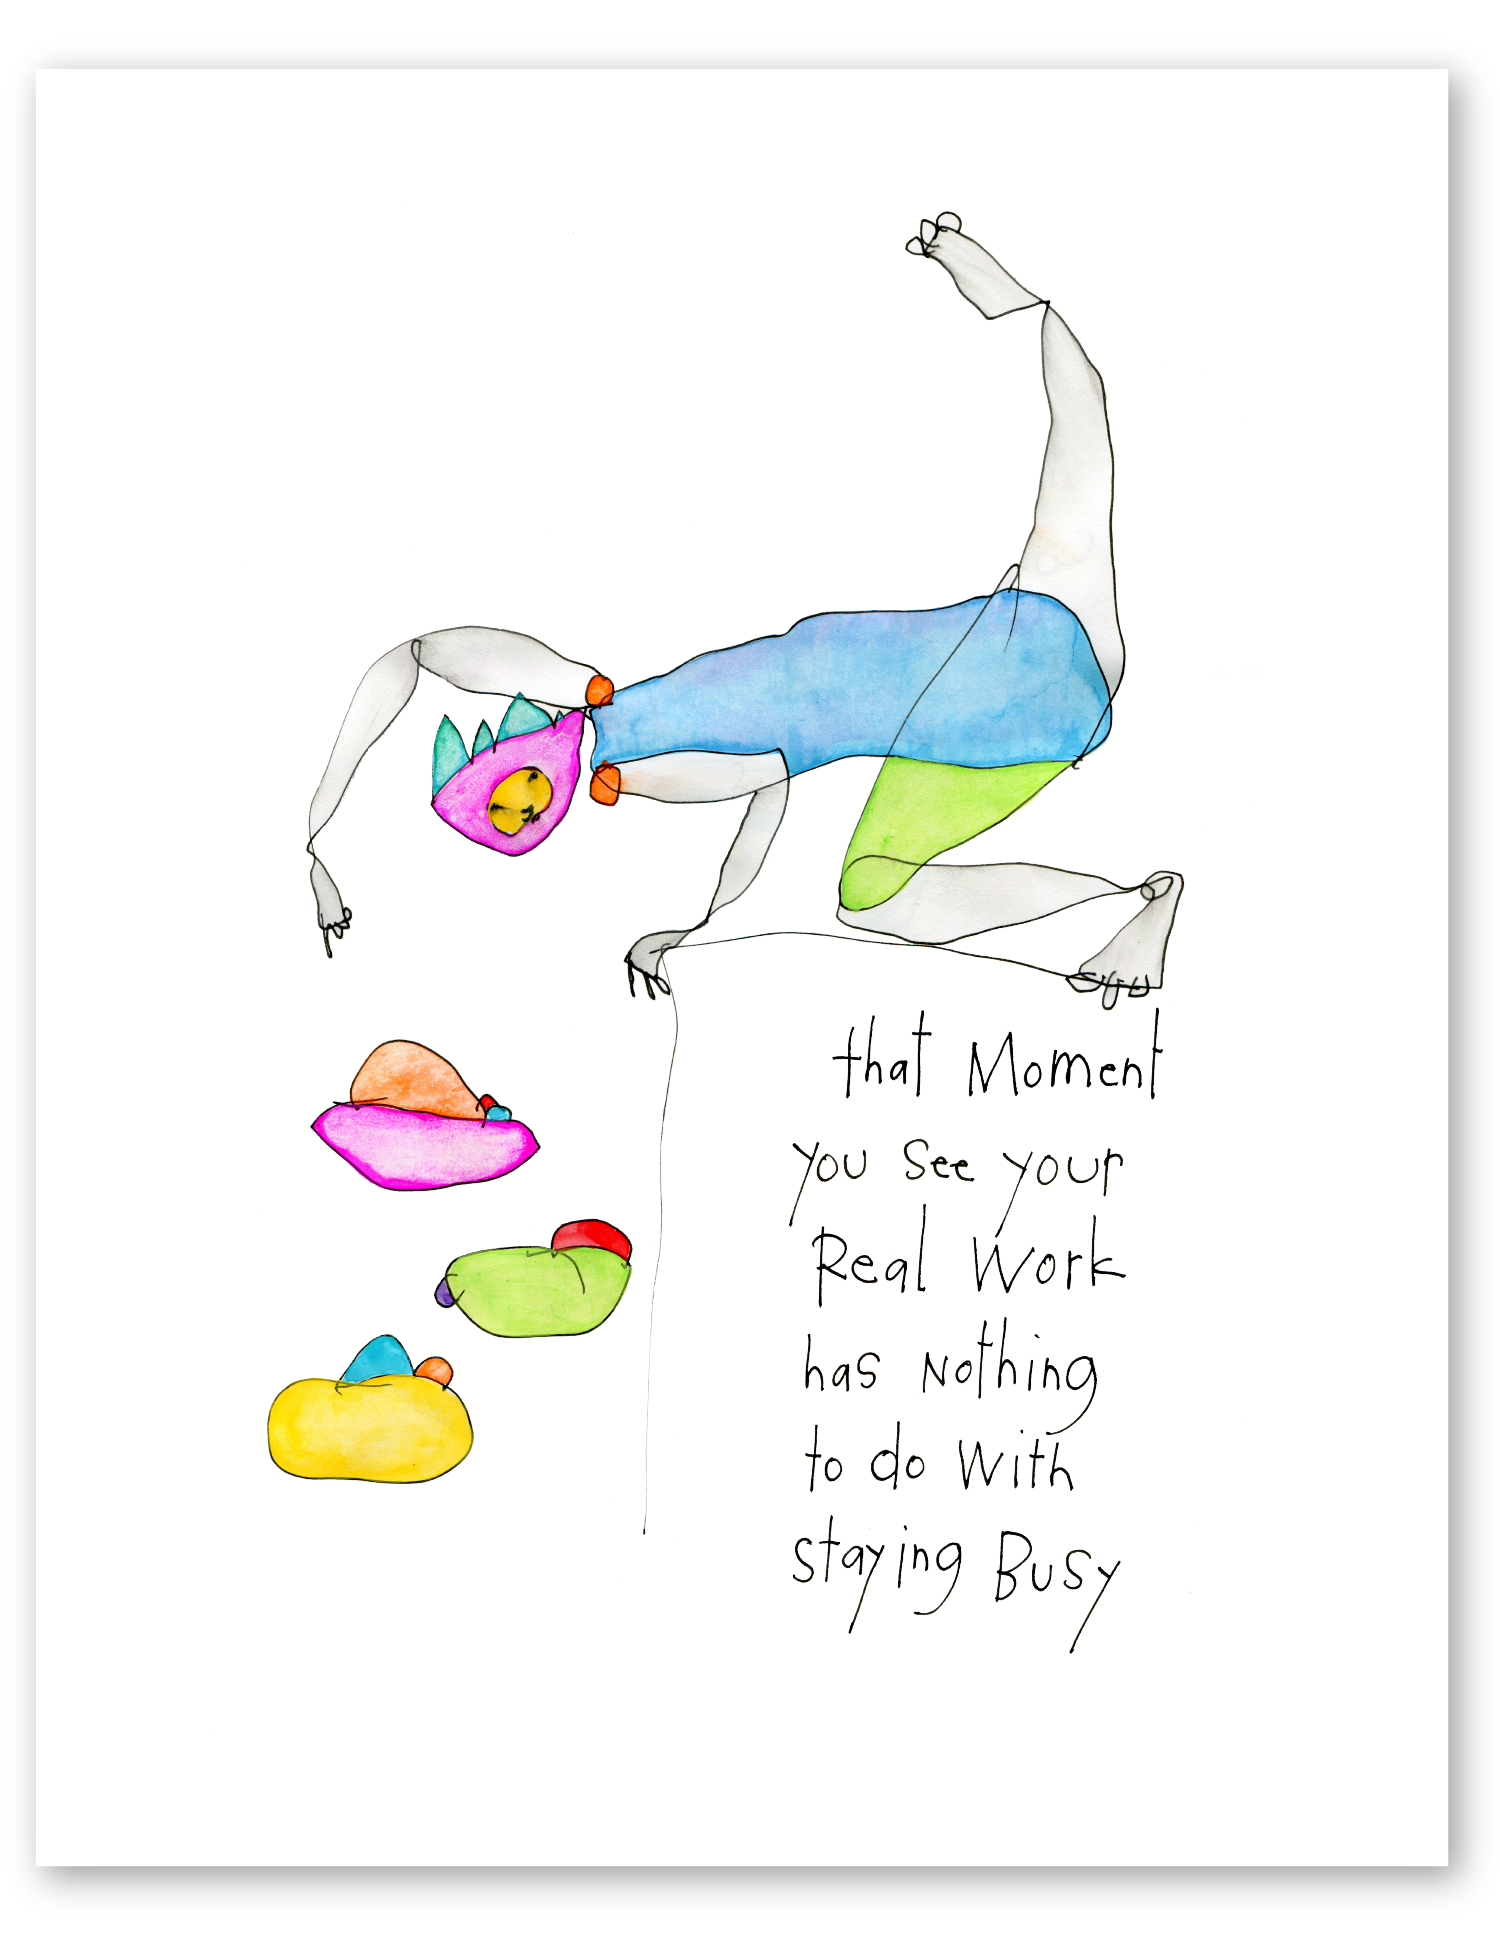 that Moment
you see your
Real Work
has Nothing
to do With
staying Busy